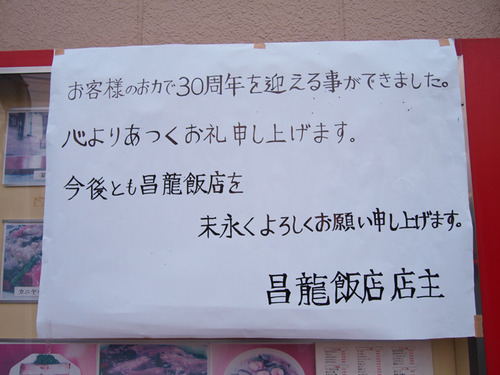 お客様のお力で30周年を迎える事ができました。
心よりあつくお礼申し上げます。
今後とも昌龍飯店を
末永くよろしくお願い申し上げます。
昌龍飯店店主